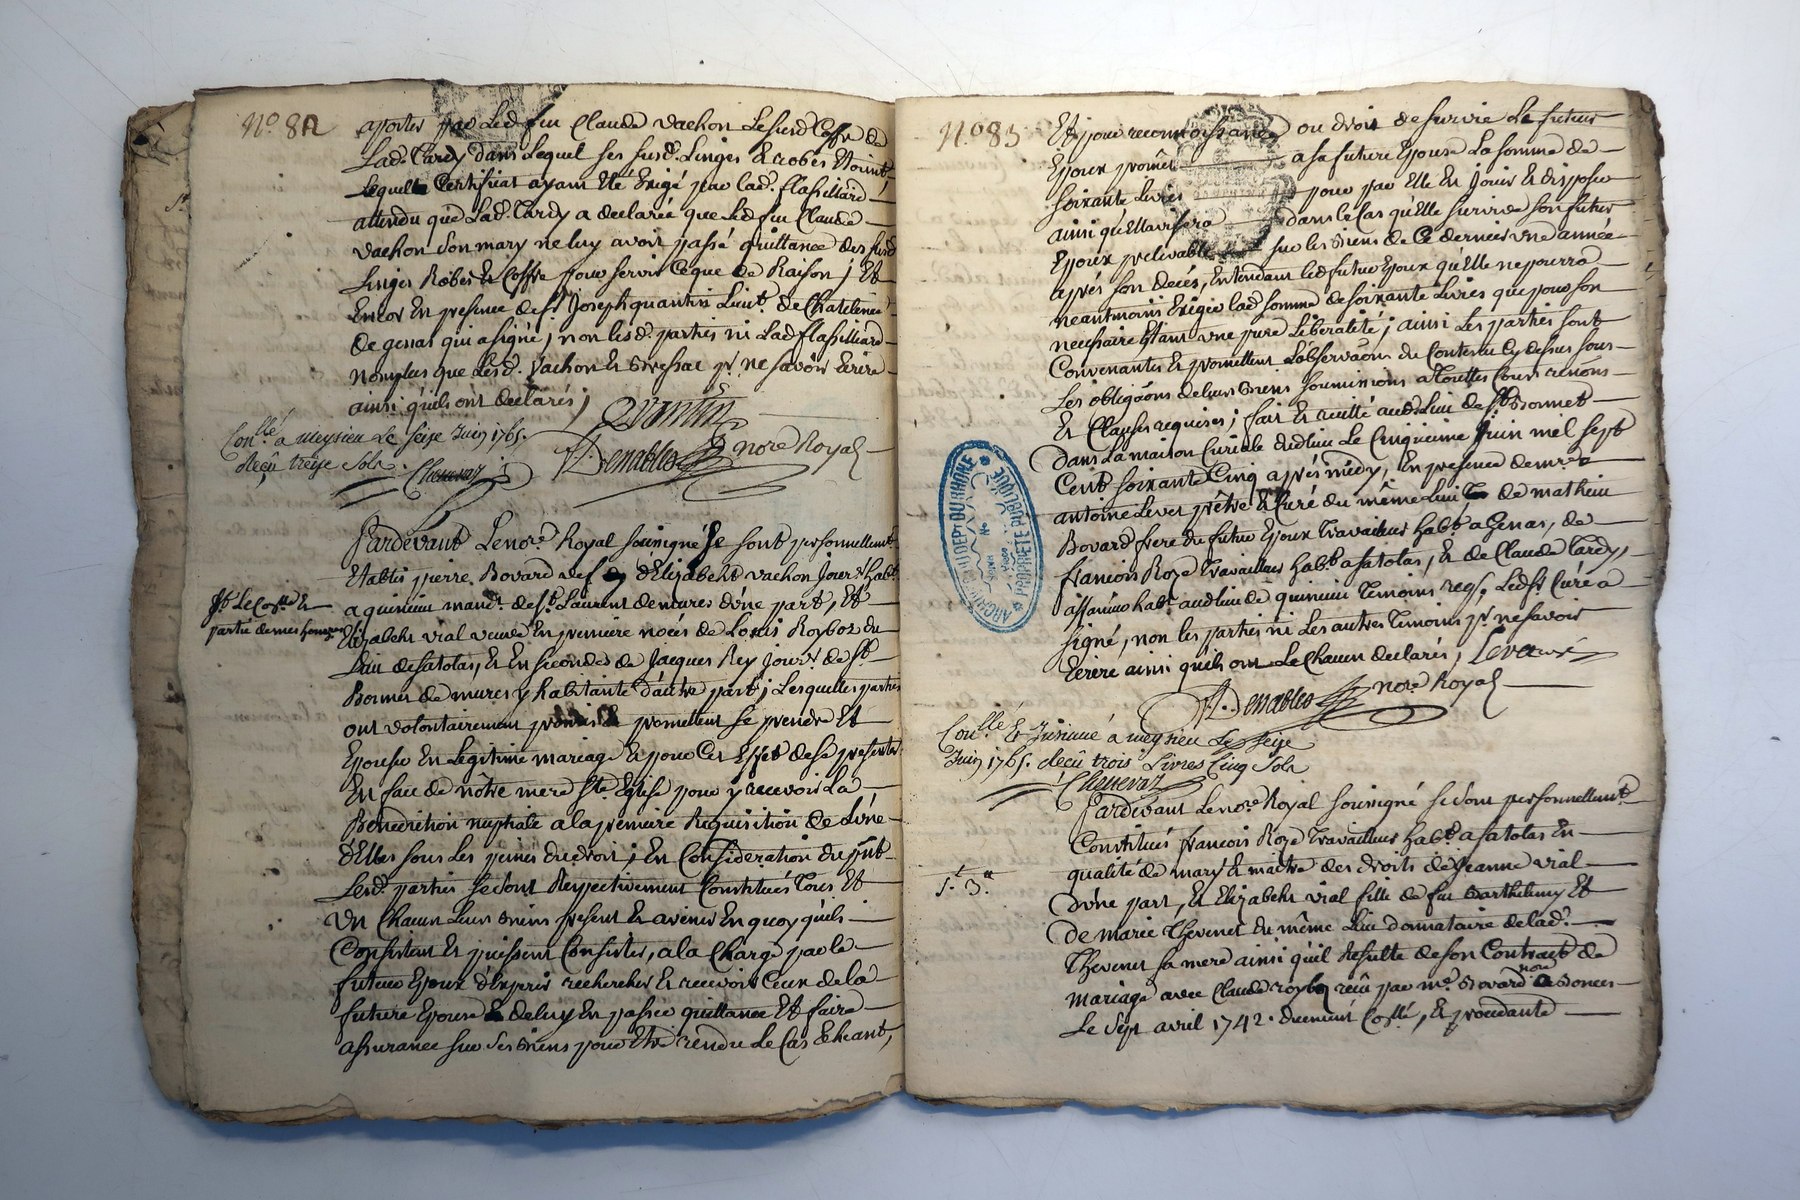 N.º 82
apportés par led. feu Claude Vachon Le susd. Coffre de
Lad. Tardy dans Lequel ses susd. Linges & robes Etoint,
Lequel Certificat ayant Eté Exigé par lad. flassilliard
attendu que Lad. Tardy a declarée que Led. feu Claude
Vachon Son mary ne luy avoir passé quittance des susd.
Linges Robes & Coffre pour servir Ceque de Raison ; Et
Encor En presence de Sr. Joseph quantin Lieut. de Chatelenie
de genas qui a signé ; non lesd. parties ni Lad. flassilliard
nonplus que Lesd. Vachon & Bressac pr. ne savoir Ecrire
ainsi qu'ils ont declarés ;
Quantin
Con.llé a meysieu Le Seize Juin 1765.
Reçû treize Sols. Chenevaz
Desnables nore Royal
Pardevant Le nore. Royal soussigné se sont personnellemt.
Etablis pierre Bovard vef d'Elizabeht vachon Jourr. habt.
a quinsieu mandt. de St. Laurent de mures d'une part, Et
ft. Le Coffre &
partie de mes honnor.
Elizabeht vial veuve En premiere noces de Louis Royboz du
Lieu de satolas, & En Secondes de Jacques Rey Jourr. de St.
Bonnet de mures y habitante d'autre part ; Lesquelles parties
ont volontairement promis & promettent se prendre Et
Epouser En Legitime mariage & pour Cet Effet de se presenter
En face de nôtre mere Ste. Eglise pour y recevoir La
Benediction nuptiale a la premiere Requisition de L'une
d'Elles sous Les peines du droit ; En Consideration du pnt.
Lesd. parties se sont Respectivement Constitués Tous Et
Un Chacun Leurs Biens present & avenir En quoy qu'ils
Consistent & puissent Consister, a la Charge par le
futur Epoux d'Exprés rechercher & recevoir Ceux de la
future Epouse & de luy En passer quittance Et faire
assurance sur Ses Biens pour Etre rendu Le Cas Echeant,
N.º 83
Et pour reconnoissance ou droit de survie Le futur
Epoux promet a sa future Epouse La somme de
soixante Livres pour par Elle En Jouir & disposer
ainsi qu'Ellavisera dans le Cas qu'Elle survive son futur
Epoux prelevable sur les Biens de Ce dernier une année
aprés son decés, Entendant led. futur Epoux qu'Elle ne pourra
neantmoins Exiger lad. somme de soixante Livres que pour son
necessaire Etant une pure Liberalité ; ainsi Les parties sont
Convenantes & promettent L'observaõns du Contenu Cy dessus sous
Les obligaõns de leurs Biens soumissions a Touttes Cours renons.
& Clauses requises ; fait & recitté aud. Lieu de St. Bonnet
dans La maison Curiale dud. lieu Le Cinquieme Juin mil Sept
Cent soixante Cinq aprés midy, En presence de mre.
antoine Levet prêtre & Curé du même Lieu & de mathieu
Bovard frere du futur Epoux Travailleur habt. a Genas, de
francois Roze Travailleur habt. a satolas, & de Claude Tardy,
habt. aud. lieu de quinsieu Temoins reqs, Led. Sr. Curé a
signé, non les parties ni Les autres Temoins pr. ne savoir
Ecrire ainsi qu'ils ont Le Chacun declarés,
Desnables nore Royal
Con.llé & Insinué a meysieu Le Seize
Juin 1765. Reçû trois Livres Cinq Sols
Chenevaz
Pardevant Le nore Royal soussigné se sont personnellemt.
Constitués francois Roze Travailleur habt. a satolas En
qualité de mary & maître des droits de Jeanne vial
d'une part, & Elizabeht vial fille de feu Barthelemy Et
de marie Thevenet du même Lieu donnataire de lad.
Thevenet sa mere ainsi qu'il Resulte de son Contract de
mariage avec Claude royboz reçû par me. Bovard nore
Le Sept avril 1742. duement Con.llé, & procedante
ARCHIVES DU DEPt DU RHONE
PROPRIÉTÉ PUBLIQUE